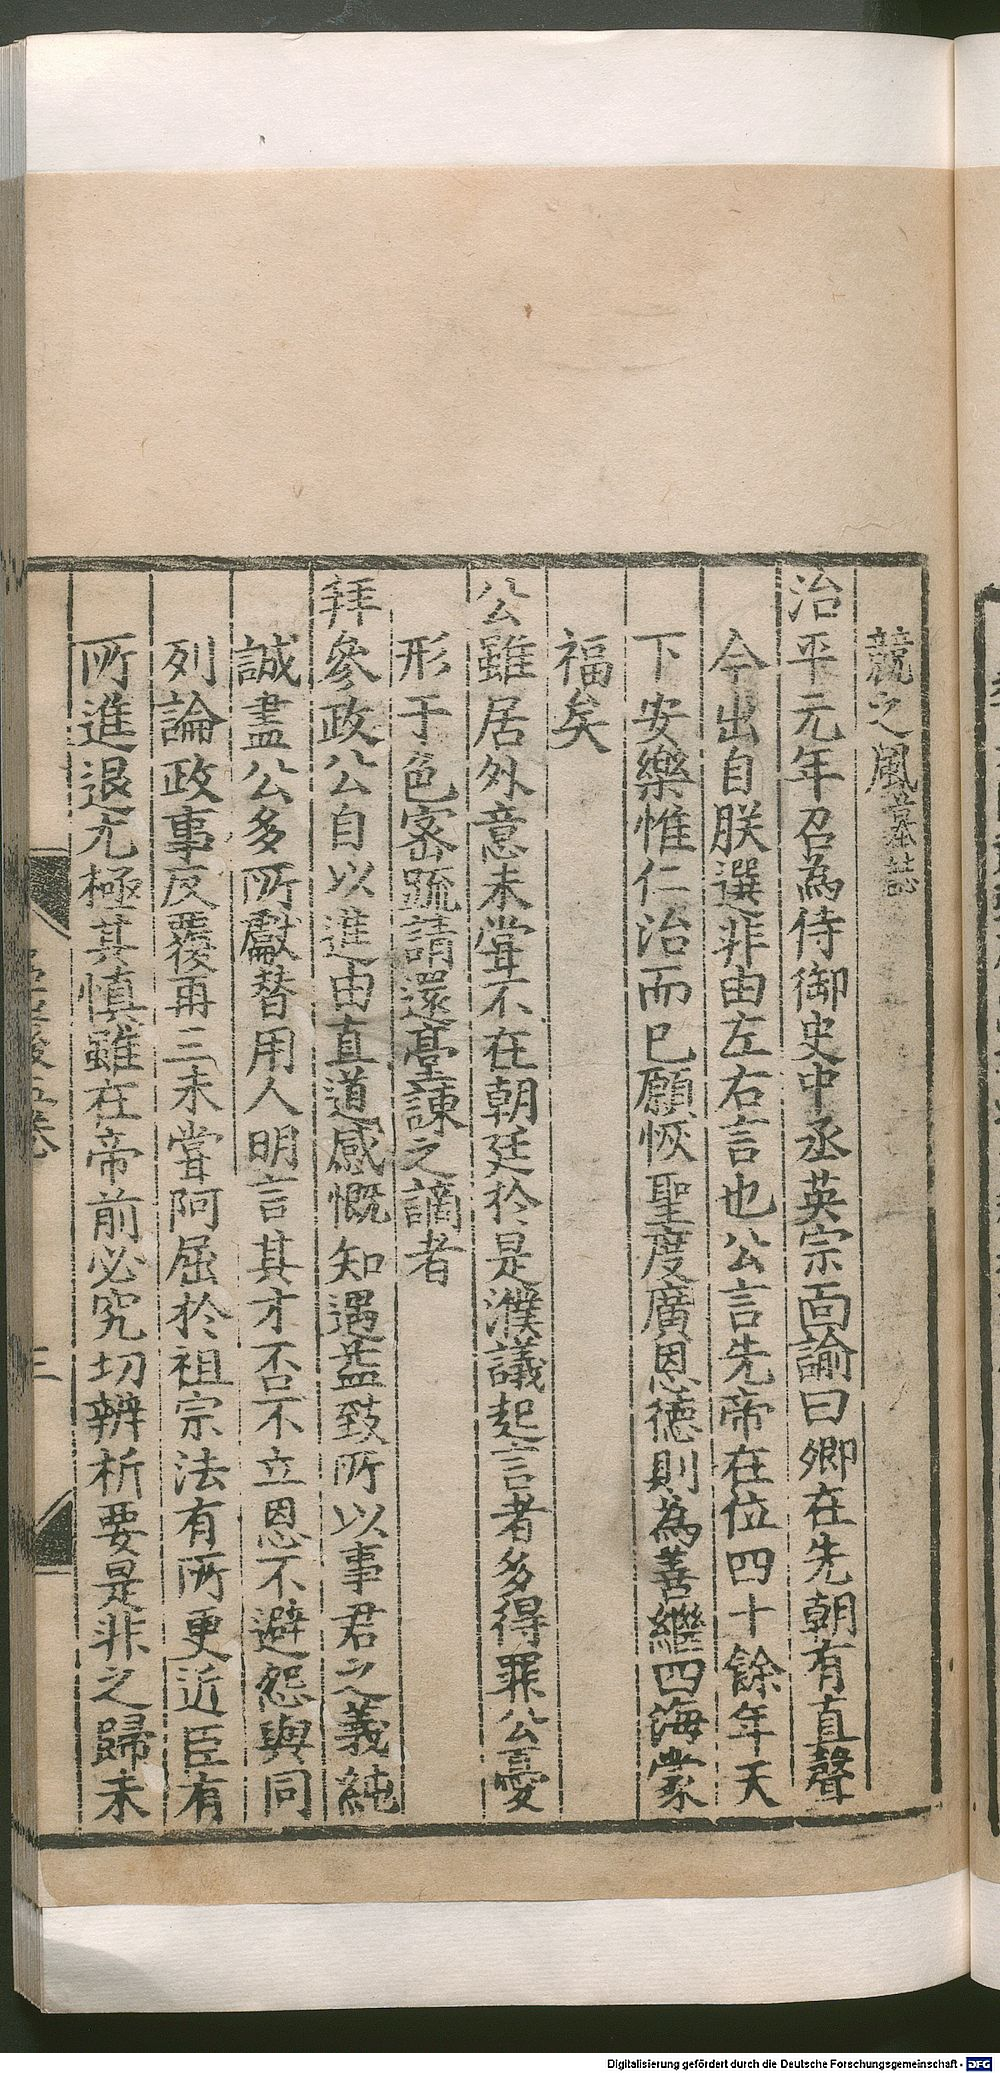 競之風墓誌
治平元年召為侍御史中丞英宗面諭曰卿在先朝有直聲
今出自朕選非由左右言也公言先帝在位四十餘年天
下安樂惟仁治而已願恢聖度廣恩德則為善繼四海蒙
福矣
公雖居外意未甞不在朝廷於是濮議起言者多得罪公憂
形于色密疏請還臺諫之謫者
拜參政公自以進由直道感慨知遇益致所以事君之義純
誠盡公多所獻替用人明言其才否不立恩不避怨與同
列論政事反覆再三未甞阿屈於祖宗法有所更近臣有
所進退尤極其慎雖在帝前必究切辨析要是非之歸未
三
Digitalisierung gefördert durch die Deutsche Forschungsgemeinschaft - DFG